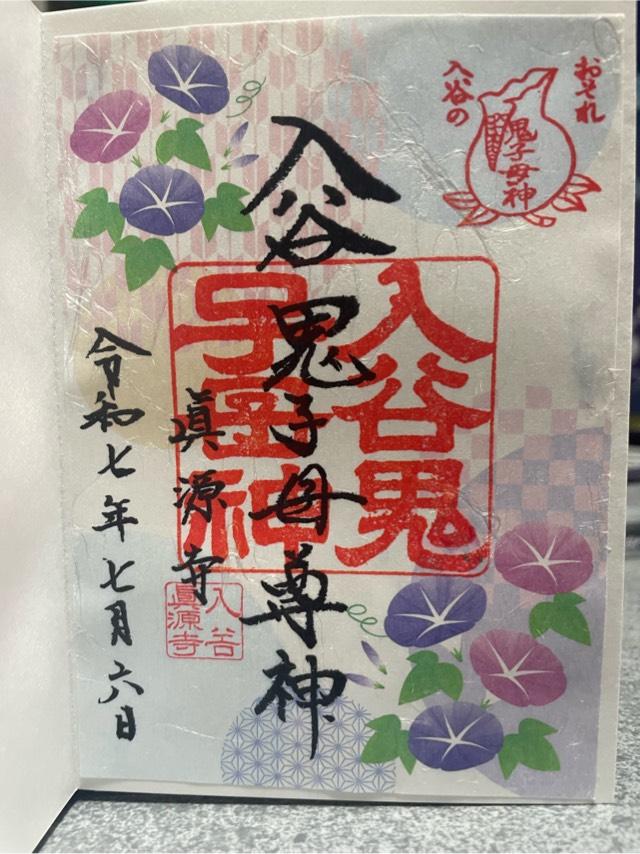 おそれ
入谷の
鬼子母神
入谷鬼子母尊神
入谷鬼
子母神
眞源寺
入谷
眞源寺
令和七年七月六日